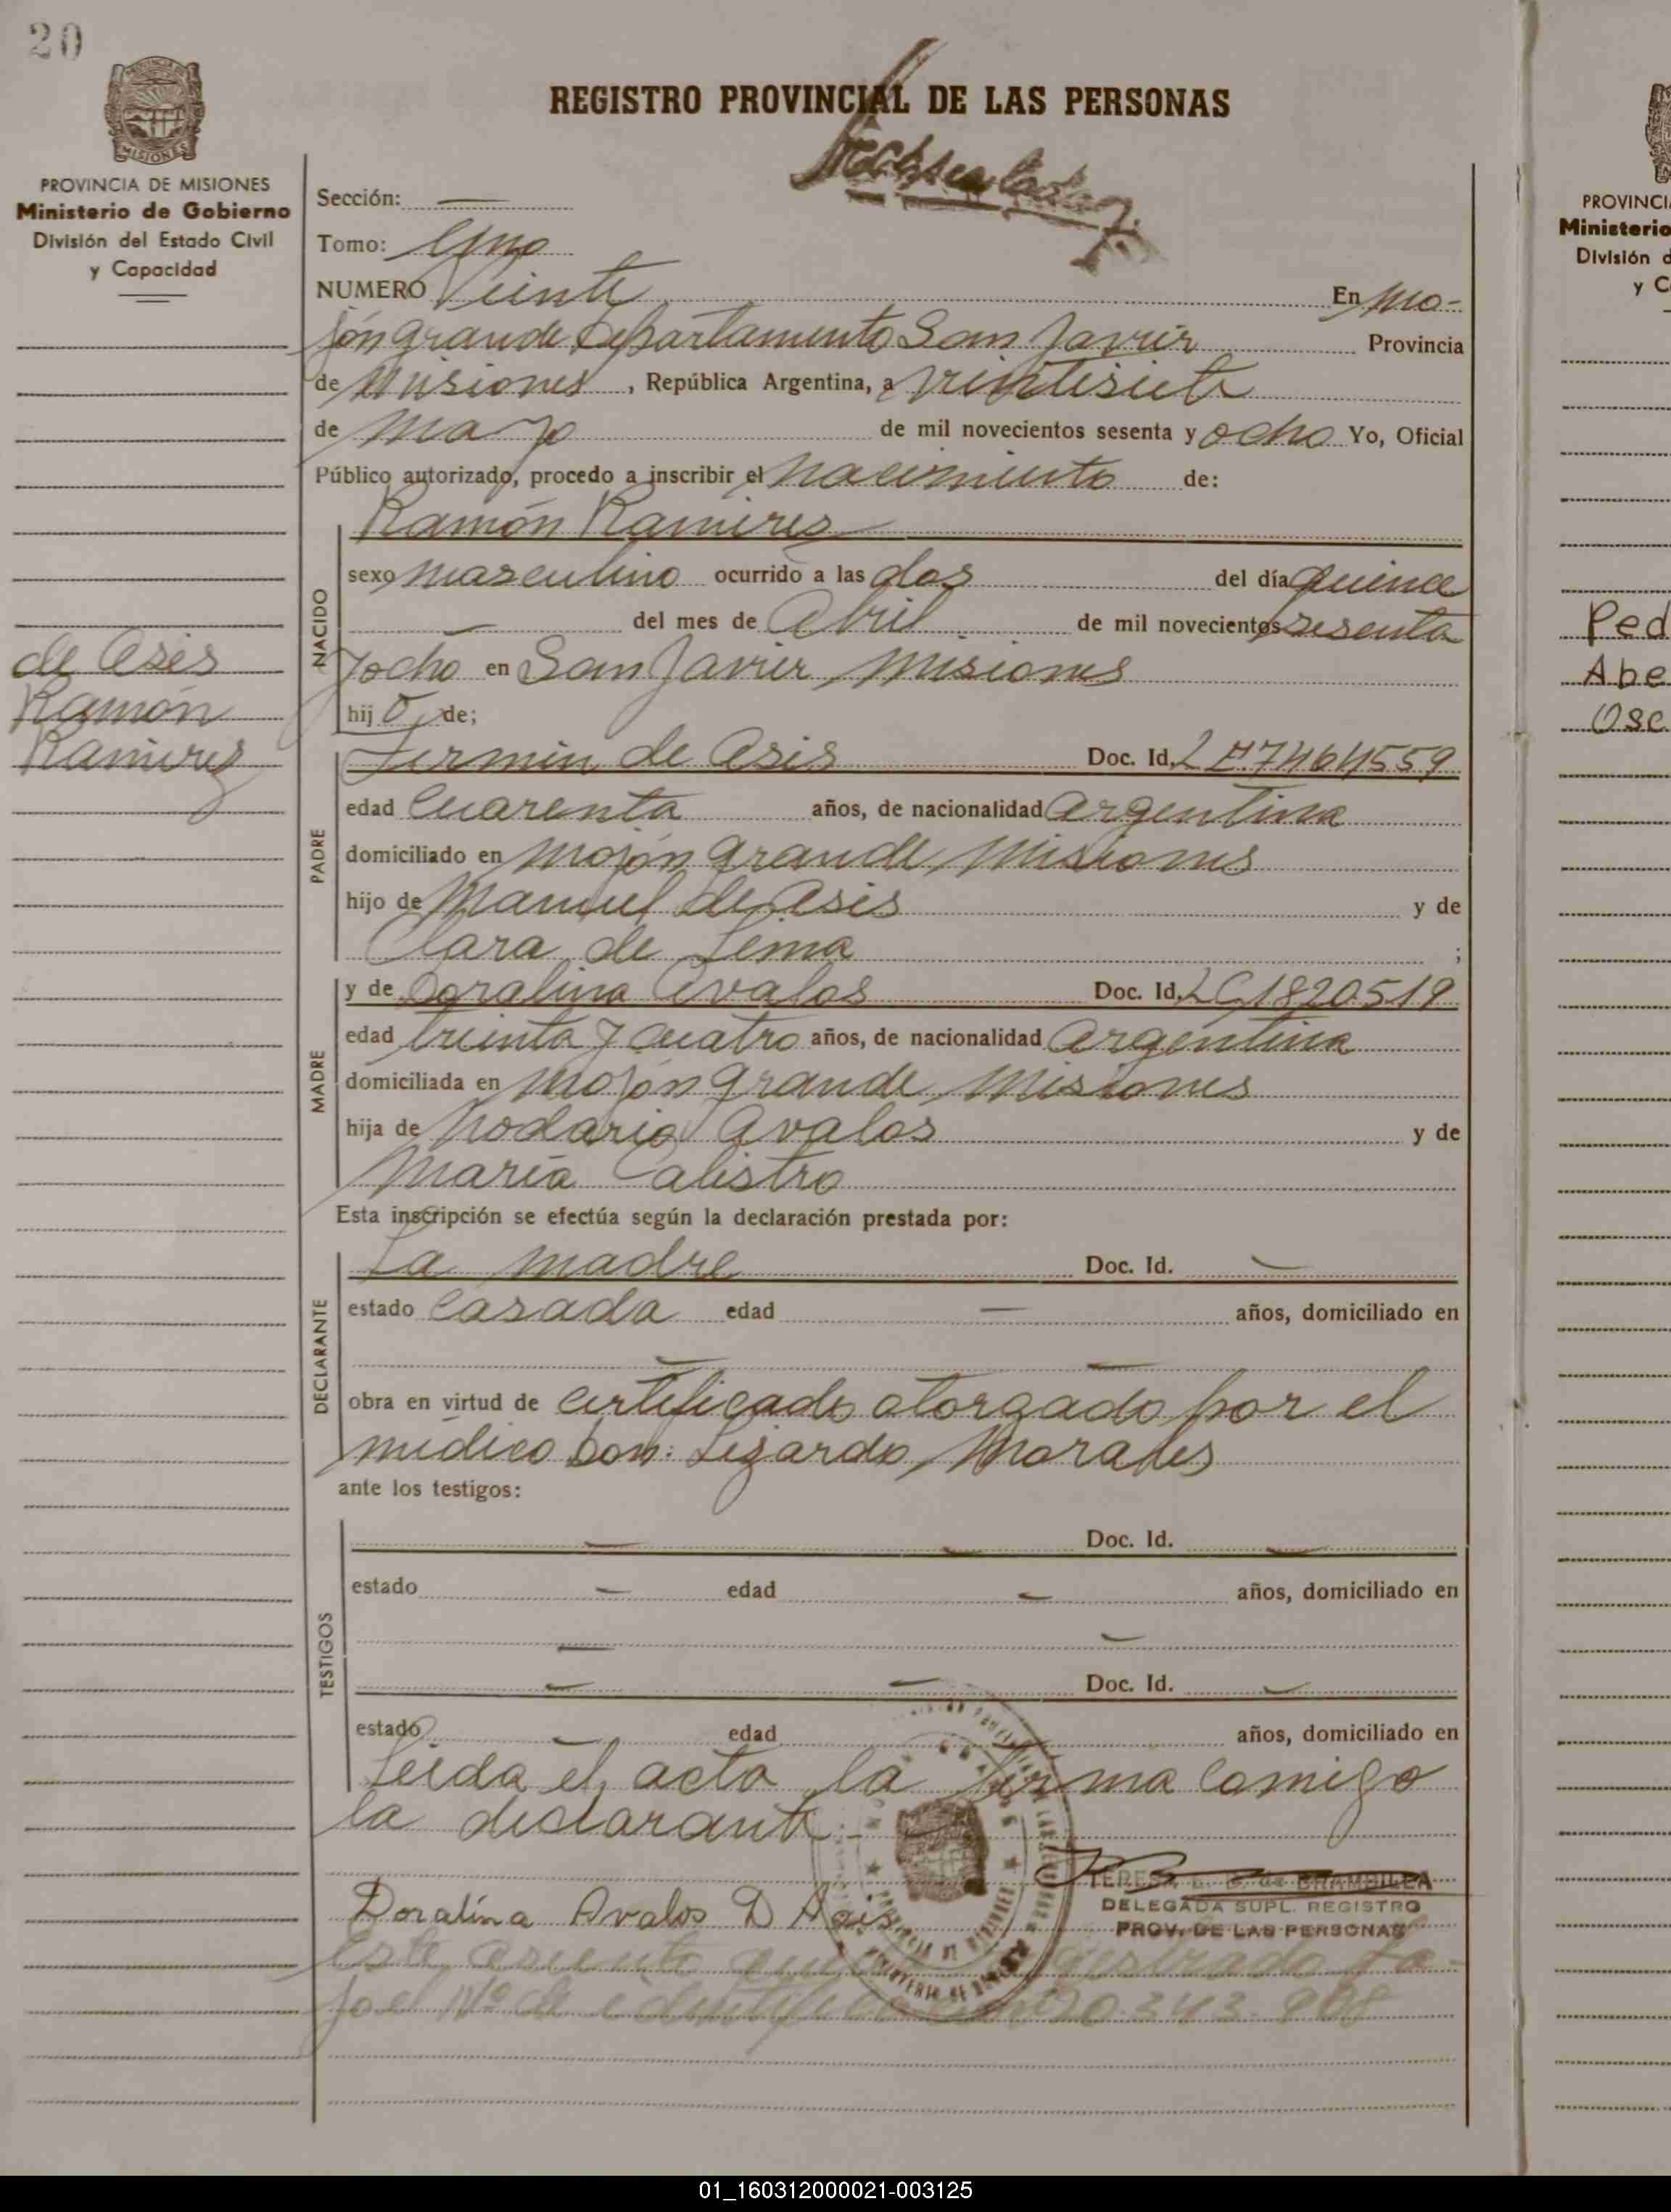 20
PROVINCIA DE MISIONES
Ministerio de Gobierno
División del Estado Civil
y Capacidad
de Asis
Ramón
Ramires
REGISTRO PROVINCIAL DE LAS PERSONAS
Sección: —
Tomo: Uno
NUMERO Veinte En Mo-
jón grande Departamento San Javier Provincia
de Misiones, República Argentina, a veintisiete
de mayo de mil novecientos sesenta y ocho Yo, Oficial
Público autorizado, procedo a inscribir el nacimiento de:
NACIDO
Ramón Ramires
sexo masculino ocurrido a las dos del día quince
— del mes de Abril de mil novecientos sesenta
y ocho en San Javier, Misiones
hijo de;
PADRE
Fermin de Asis Doc. Id. L E 7464559
edad Cuarenta años, de nacionalidad Argentina
domiciliado en Mojón grande, Misiones
hijo de Manuel de Asis y de
Clara de Lema ;
MADRE
y de Doralina Avalos Doc. Id. LC 1820519
edad treinta y cuatro años, de nacionalidad Argentina
domiciliada en Mojón grande, Misiones
hija de Avalos y de
María Calistro
Esta inscripción se efectúa según la declaración prestada por:
DECLARANTE
La madre Doc. Id. —
estado Casada edad — años, domiciliado en
— —
obra en virtud de certificado otorgado por el
médico Don: Lizardo, Morales
ante los testigos:
TESTIGOS
— — Doc. Id. —
estado — edad — años, domiciliado en
— —
— — Doc. Id. —
estado — edad años, domiciliado en
Leida el acta la firma comigo
la declarante.-
TERESA DE BRAMBILLA
DELEGADA SUPL. REGISTRO
PROV. DE LAS PERSONAS
Doralina Avalos D Asis
Este asiento registrado ba-
jo el Nº de 20.343.908
PROVINCI
Ministerio
División d
y C
Ped
Abe
Osc
01_160312000021-003125